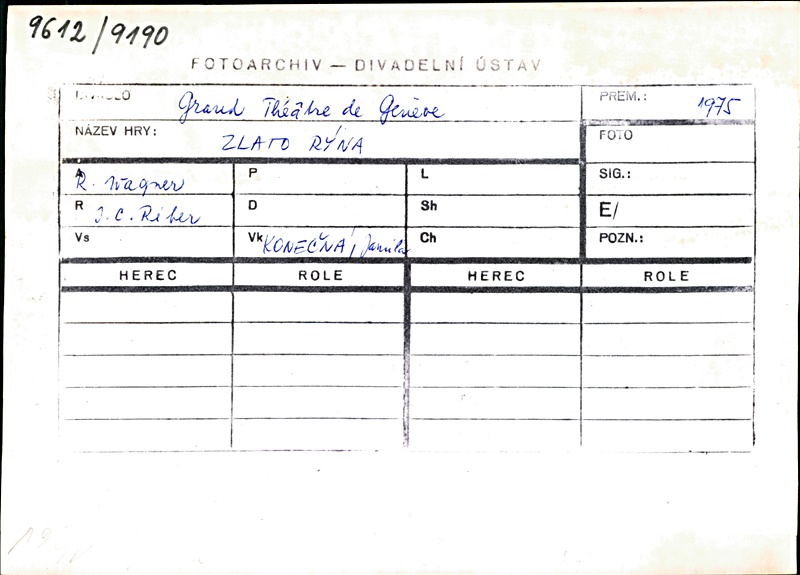 9612/9190
FOTOARCHIV — DIVADELNÍ ÚSTAV
DIVADLO Grand Théâtre de Genève PREM.: 1975
NÁZEV HRY: ZLATO RÝNA FOTO
A R. Wagner P L SIG.:
R J. C. Riber D Sh E/
Vs Vk KONEČNÁ, Jarmila Ch POZN.:
HEREC ROLE HEREC ROLE